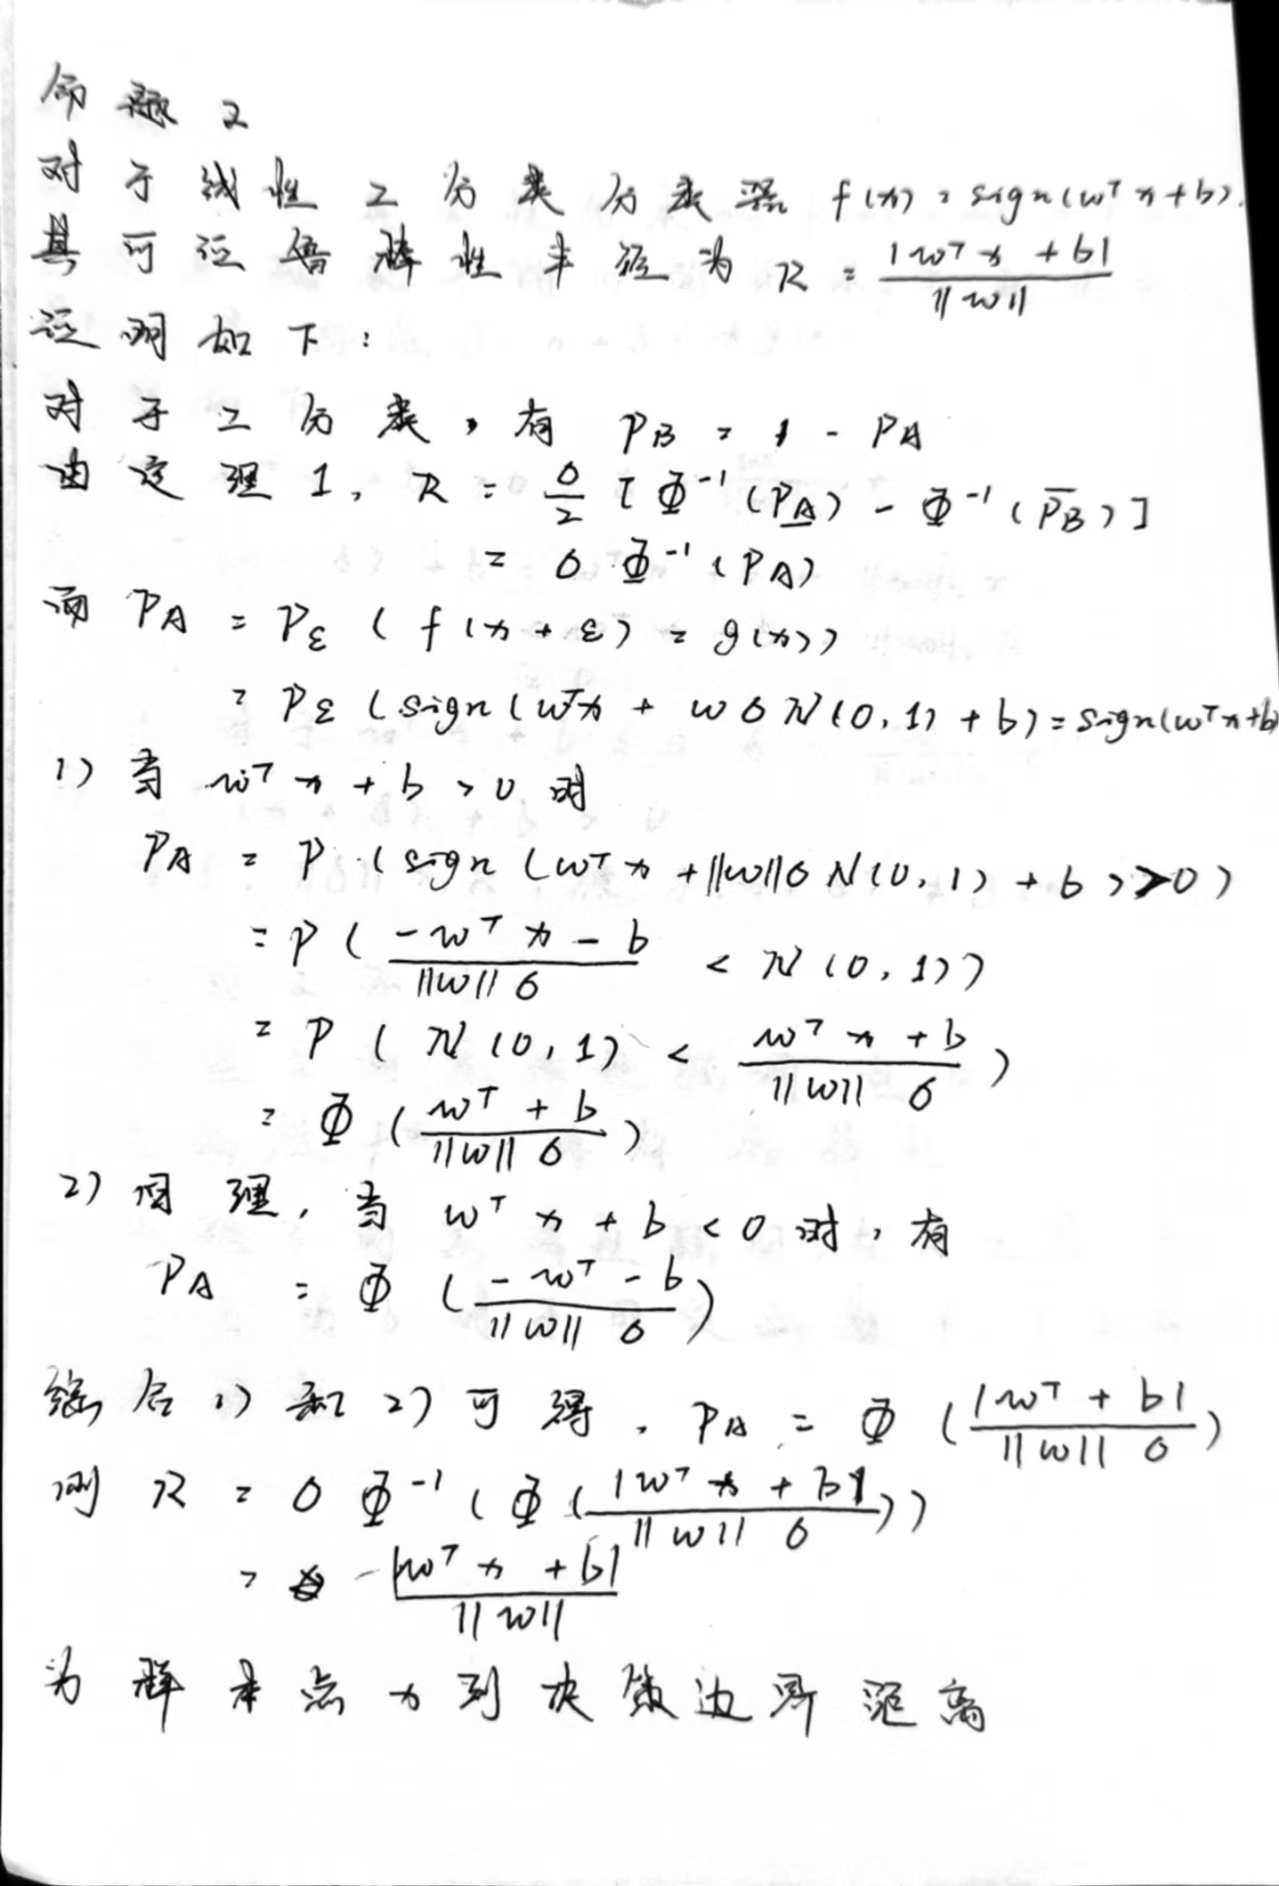 命题2
对于线性二分类分类器 f(x) = sign(wᵀx+b),
其可证鲁棒性半径为 R = |wᵀx + b| / ||w||
证明如下:
对于二分类,有 P_B = 1 - P_A
由定理1, R = σ/2 [Φ⁻¹(\underline{P_A}) - Φ⁻¹(\overline{P_B})]
= σ Φ⁻¹(P_A)
而 P_A = P_ε (f(x+ε) = g(x))
= P_ε (sign(wᵀx + wσN(0,1) + b) = sign(wᵀx+b
1) 当 wᵀx + b > 0 时
P_A = P (sign(wᵀx + ||w||σN(0,1) + b) > 0)
= P ((-wᵀx - b) / (||w||σ) < N(0,1))
= P (N(0,1) < (wᵀx + b) / (||w||σ))
= Φ ((wᵀ + b) / (||w||σ))
2) 同理,当 wᵀx + b < 0 时,有
P_A = Φ ((-wᵀ - b) / (||w||σ))
综合1)和2)可得, P_A = Φ (|wᵀ + b| / (||w||σ))
则 R = σ Φ⁻¹(Φ(|wᵀx + b| / (||w||σ)))
= |wᵀx + b| / ||w||
为样本点x到决策边界距离